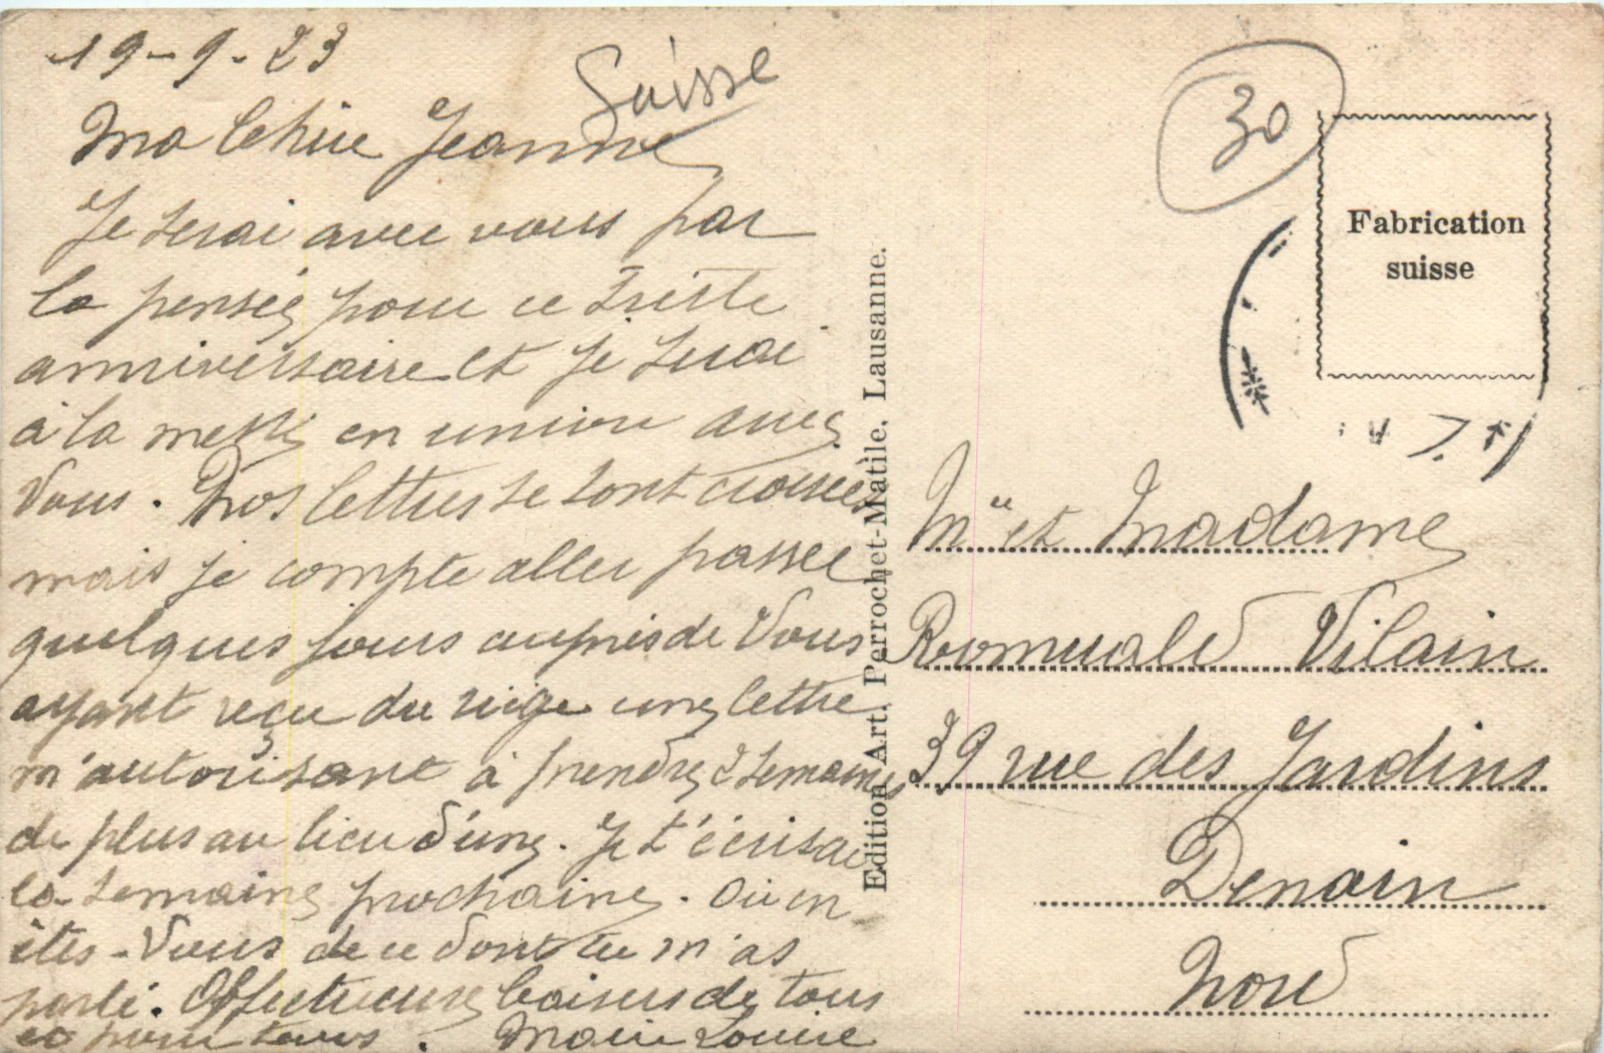 19-9-23
Suisse
Ma Chère Jeanne
Je serai avec vous par
la pensée pour ce triste
anniversaire et je serai
à la messe en union avec
Vous. Nos lettres se sont croisées
mais je compte aller passer
quelques jours auprès de Vous
ayant reçu du une lettre
m'autorisant à prendre 2 semaines
de plus au lieu d'une. Je t'écrirai
la semaine prochaine. Où en
êtes-Vous de ce dont tu m'as
parlé. Affectueux baisers de tous
et pour tous. Marie Louise
Edition Art. Perrochet-Matile, Lausanne.
30
Fabrication
suisse
Mr et Madame
Romuald Vilain
39 rue des Jardins
Denain
Nord